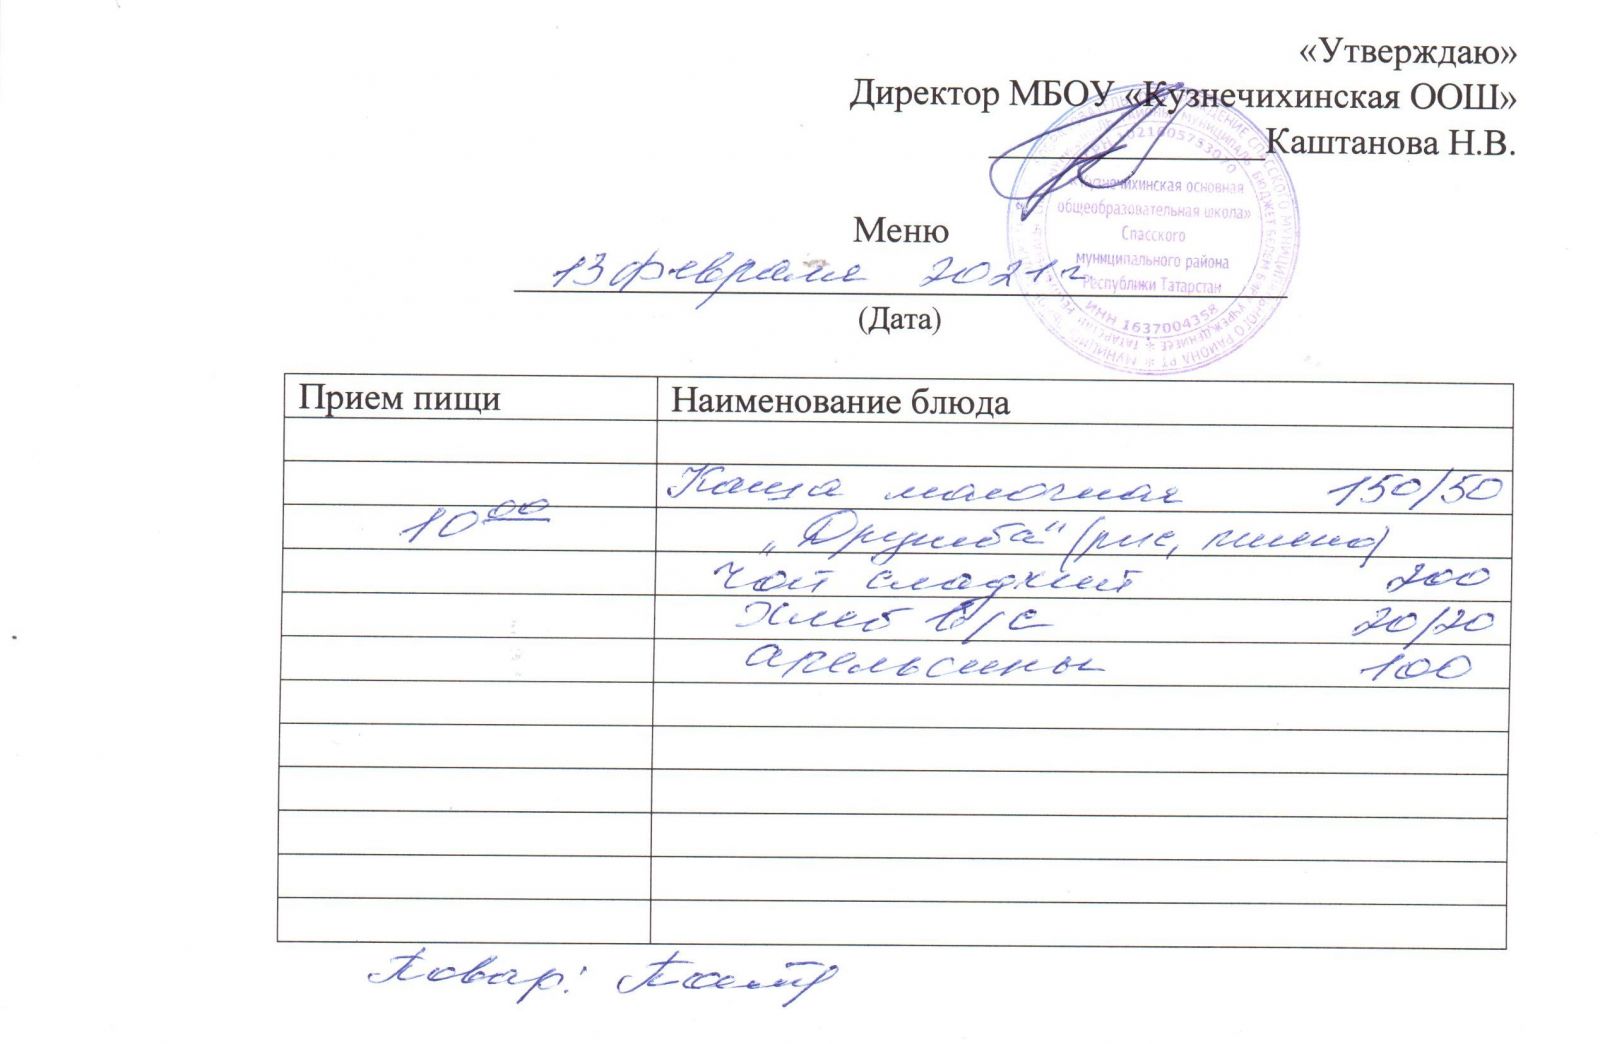 «Утверждаю»
Директор МБОУ «Кузнечихинская ООШ»
Каштанова Н.В.
«Кузнечихинская основная
общеобразовательная школа»
Спасского
муниципального района
Республики Татарстан
ИНН 1637004358
Меню
13 февраля 2021 г
(Дата)
Прием пищи Наименование блюда
Каша молочная 150/50
10 00 "Дружба" (рис, пшено)
Чай сладкий 200
Хлеб в/с 20/20
апельсины 100
Повар: